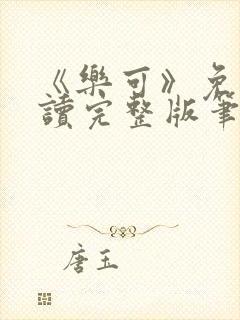 《樂可》免
讀完整版筆
唐玉